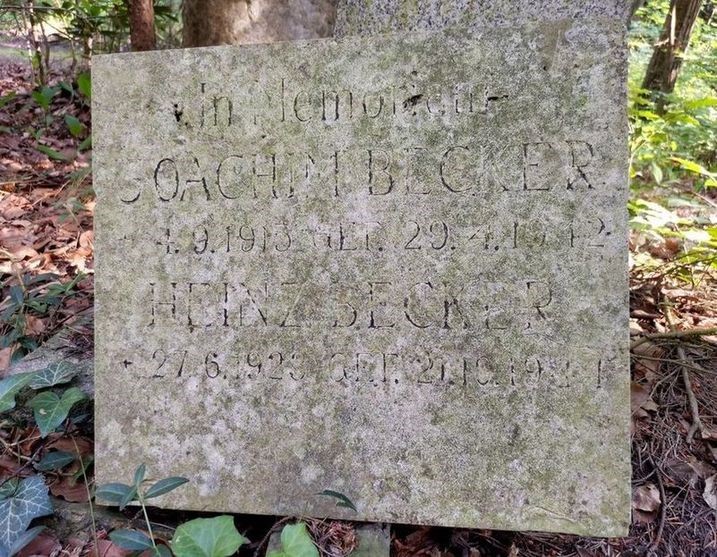 In Memoriam
JOACHIM BECKER
4.9.1913 GEF. 29.4.1942
HEINZ BECKER
27.6.1923 GEF. 21.10.1941